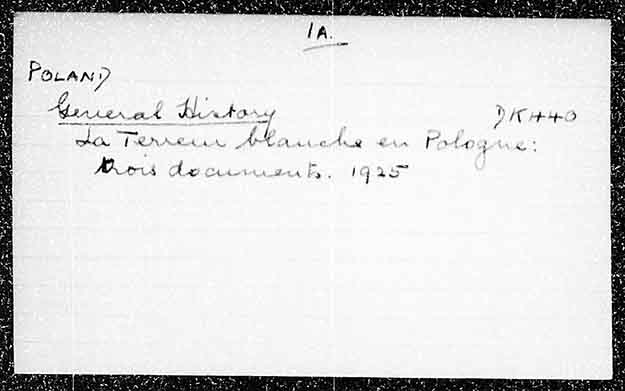 1A.
POLAND
General History DK440
La Terreur blanche en Pologne:
trois documents. 1925